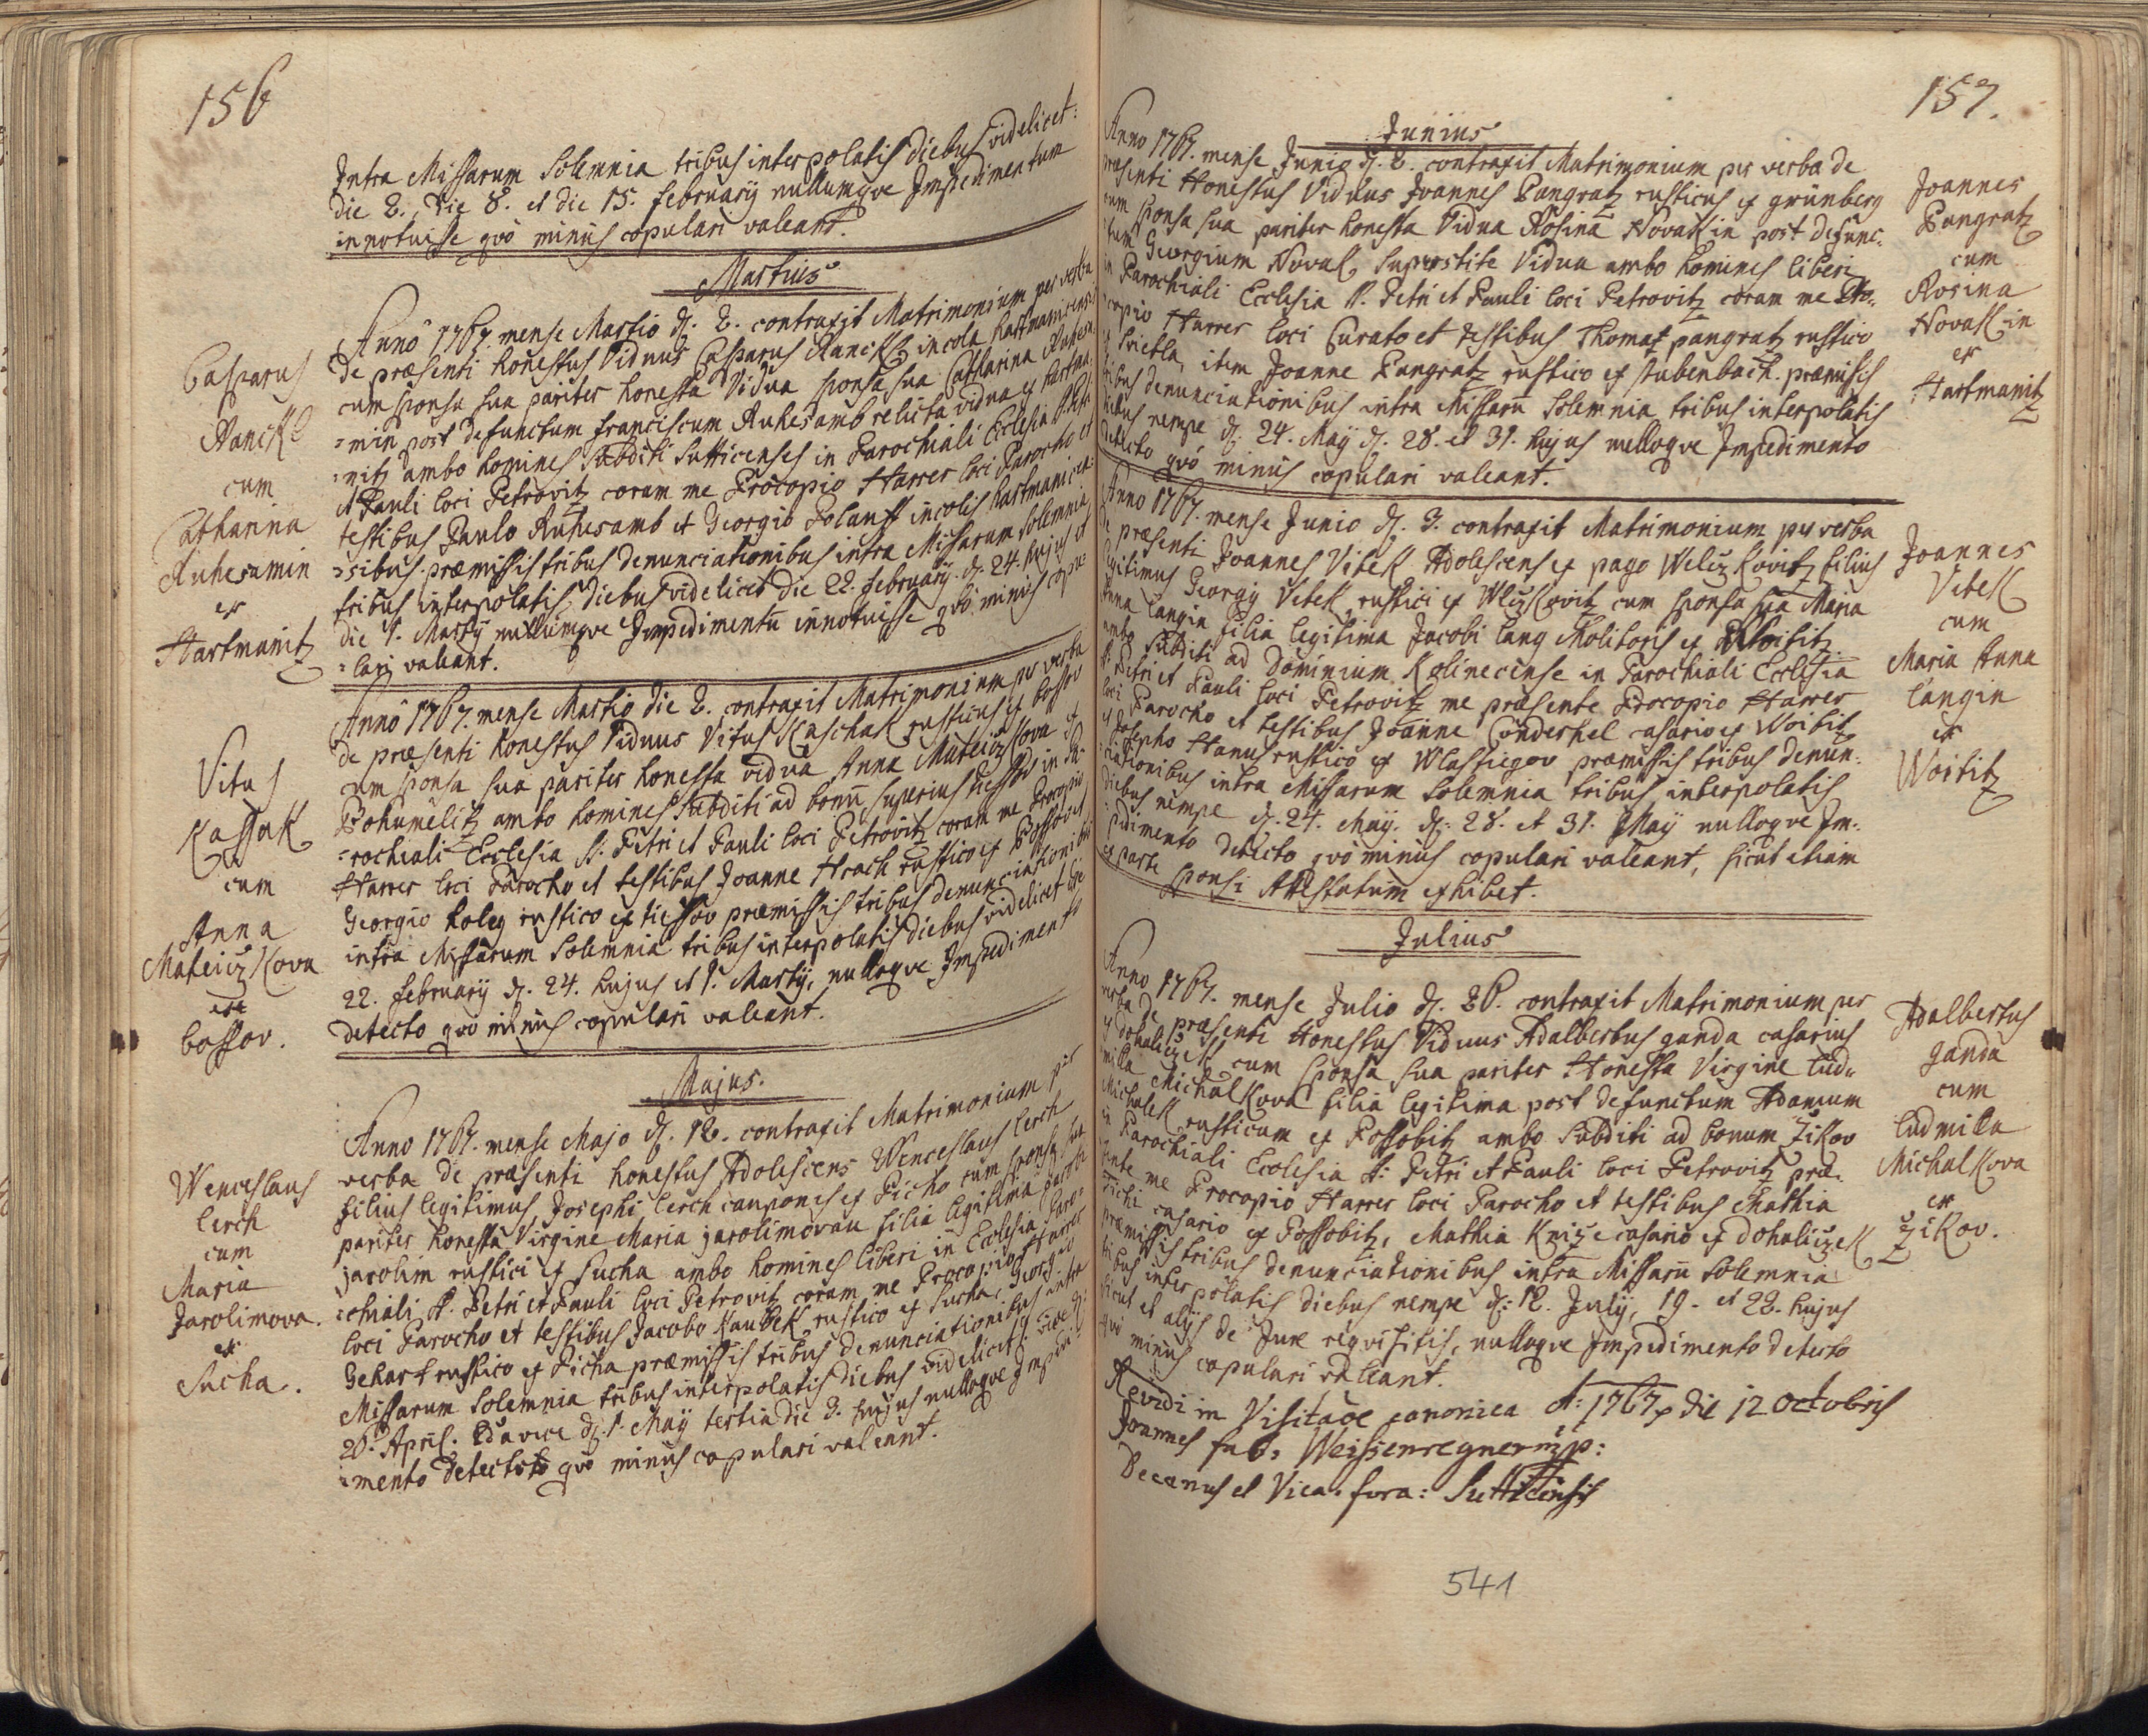 156
Intra Missarum Solemnia tribus interpolatis diebus videlicet:
die 2., die 8. et die 15. February nullumque Impedimentum
innotuisse quò minùs copulari valeant.
Martius
Casparus
Ranckl
cum
Catharina
Ruhesamin
ex
Hartmanitz
Anno 1767. mense Martio d. 2. contraxit Matrimonium per verba
de præsenti honestus Viduus Casparus Ranckl incola Hartmanicensis
cum sponsa sua pariter honesta Vidua sponsa sua Catharina Ruhesa-
=min post defunctum Franciscum Ruhesamb relicta vidua ex Hartma-
=nitz ambo homines Subditi Sutticenses in Parochiali Ecclesia S. Petri
et Pauli loci Petrovitz coram me Procopio Harrer loci Parocho et
testibus Paulo Ruhesamb et Georgio incolis Hartmanicen-
=sibus. præmissis tribus denunciationibus intra Missarum Solemnia
tribus interpolatis diebus videlicet die 22. February. d. 24. hujus et
die 1. Marty nullumque Impedimentũ innotuisse quò minùs copu-
=lari valeant.
Vitus
Kassak
cum
Anna
Mateiczkova
ex
bossov.
Anno 1767. mense Martio die 2. contraxit Matrimonium per verba
de præsenti honestus Viduus Vitus Kuschak rusticus ex bossov
cum sponsa sua pariter honesta vidua Anna Mateiczkova ex
Bohumelitz ambo homines Subditi ad bonũ superius tiessov in Pa-
=rochiali Ecclesia S: Petri et Pauli loci Petrovitz coram me Procopio
Harrer loci Parocho et testibus Joanne Hrach rustico ex bossov et
Georgio holey rustico ex tiessov præmissis tribus denunciationibus
intra Missarum Solemnia tribus interpolatis diebus videlicet die
22. February d. 24. hujus et 1. Marty, nulloque Impedimento
detecto quo minùs copulari valeant.
Majus.
Wenceslaus
lerch
cum
Maria
Jarolimova.
ex
Sucha.
Anno 1767. mense Majo d. 12. contraxit Matrimonium per
verba de præsenti honestus Adolescens Wenceslaus lerch
filius legitimus Josephi lerch cauponis ex Picho cum sponsa sua
pariter honesta Virgine Maria jarolimovau filia legitima Jacobi
jarolim rustici ex Sucha ambo homines liberi in Ecclesia Paro-
=chiali S. Petri et Pauli loci Petrovitz coram me Procopio Harrer
loci Parocho et testibus Jacobo Kaubek rustico ex Sucha, Georgio
Gekart rustico ex Picha præmissis tribus denunciationibus intra
Missarum Solemnia tribus interpolatis diebus videlicet:
26. April. 2da vice d. 1. Maÿ tertia die 3. hujus nulloque Impedi-
=mento detecto quò minùs copulari valeant.
157.
Junius
Joannes
Pangratz
cum
Rosina
Novakin
ex
Hartmanitz
Anno 1767. mense Junio d. 2. contraxit Matrimonium per verba de
præsenti Honestus Viduus Joannes Pangratz rusticus ex grünberg
cum sponsa sua pariter honesta Vidua Rosina Novakin post defunc-
tum Georgium Novak, Superstite Vidua ambo homines liberi
in Parochiali Ecclesia S. Petri et Pauli loci Petrovitz coram me Pro-
copio Harrer loci Curato et testibus Thoma pangratz rustico
ex Swietla, item Joanne Pangratz rustico ex Stubenbach. præmissis
tribus denunciationibus intra Missarũ Solemnia tribus interpolatis
diebus nempe d. 24. Maÿ d. 28. et 31. hujus nulloque Impedimento
detecto quò minùs copulari valeant.
Joannes
Vitek
cum
Maria Anna
langin
ex
Woititz
Anno 1767. mense Junio d. 3. contraxit Matrimonium per verba
de præsenti Joannes Vitek Adolescens ex pago Weliczkovitz filius
legitimus Georgÿ Vitek rustici ex Wliczkovitz cum sponsa sua Maria
Anna langin filia legitima Jacobi lang Molitoris ex Woititz
ambo Subditi ad Dominium Kolinecense in Parochiali Ecclesia
S: Petri et Pauli loci Petrovitz me præsente Procopio Harrer
loci Parocho et testibus Joanne Conderhel casario ex Woititz
et Josepho Hanus rustico ex Wlastiegov præmissis tribus denun-
ciationibus intra Missarum Solemnia tribus interpolatis
diebus nempe d. 24. Maÿ. d. 28. et 31. Maÿ nulloque Im-
pedimento detecto quò minùs copulari valeant, sicut etiam
ex parte sponsi Attestatum exhibet.
Julius
Adalbertus
ganda
cum
ludmilla
Michalkova
ex
Žikov.
Anno 1767. mense Julio d. 26. contraxit Matrimonium per
verba de præsenti Honestus Viduus Adalbertus ganda casarius
ex dohaliczek cum sponsa sua pariter Honesta Virgine lud-
milla Michalkova filia legitima post defunctum Adamum
Michalek rusticum ex Possobitz ambo Subditi ad bonum Žikov
in Parochiali Ecclesia S: Petri et Pauli loci Petrovitz præ-
sente me Procopio Harrer loci Parocho et testibus Mathia
casario ex Possobitz, Mathia Knize casario ex dohaliczek
præmissis tribus denunciationibus intra Missarũ Solemnia
tribus interpolatis diebus nempe d: 12. Julÿ, 19. et 22. hujus
sicut et alijs de Jure requisitis, nulloque Impedimento detecto
quò minùs copulari valeant.
Revidi in Visitaõe canonica Aõ: 1767 die 12 Octobris
Joannes Weissenregner mp:
Decanus et Vica. fora: Sutticensis
541